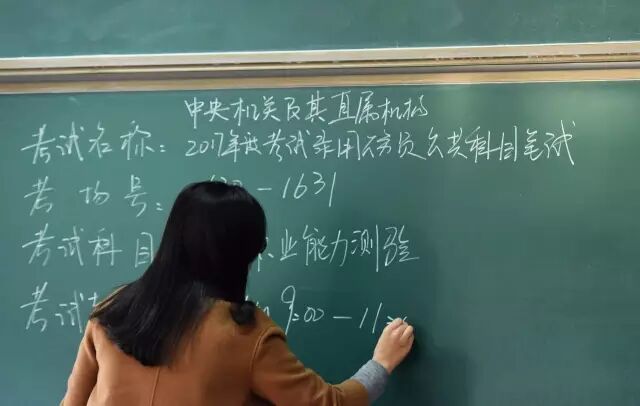 中央机关及其直属机构
考试名称：2017年度考试录用公务员公共科目笔试
考场号： - 1631
考试科目 业能力测验
考试 9:00 - 11